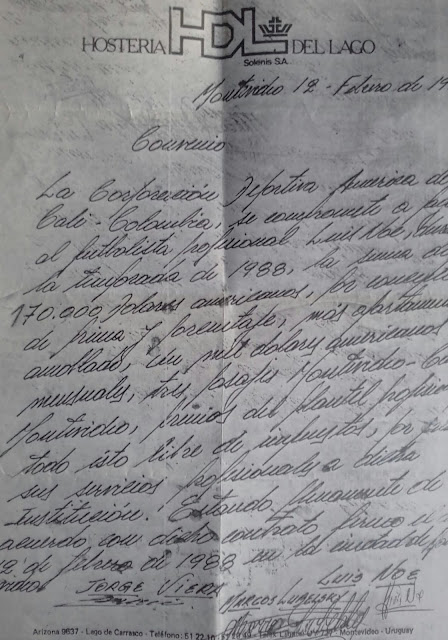 HOSTERIA HDL DEL LAGO
Solenis S.A.
Montevideo 12 - Febrero de 19
Convenio
La Corporación Deportiva America de
Cali - Colombia, se compromete a p
al futbolista profesional Luis Noe, dur
la temporada de 1988, la suma d
170.000 dolares americanos, por concep
de prima y porcentaje, más apartamen
amoblado, un mil dolares americanos
mensuales, tres pasajes Montevideo - C
Montevideo, premios del plantel profes
todo isto libre de impuestos, por
sus servicios profesionales a dicha
Institución. Estando firmemente de
acuerdo con dicho contrato firmo
2 de febrero de 1988 en la ciudad de
JORGE VIERA LUIS NOE
MARCOS LUBELSKY
Arizona 9637 - Lago de Carrasco - Teléfono: 51 22 10 Montevideo - Uruguay